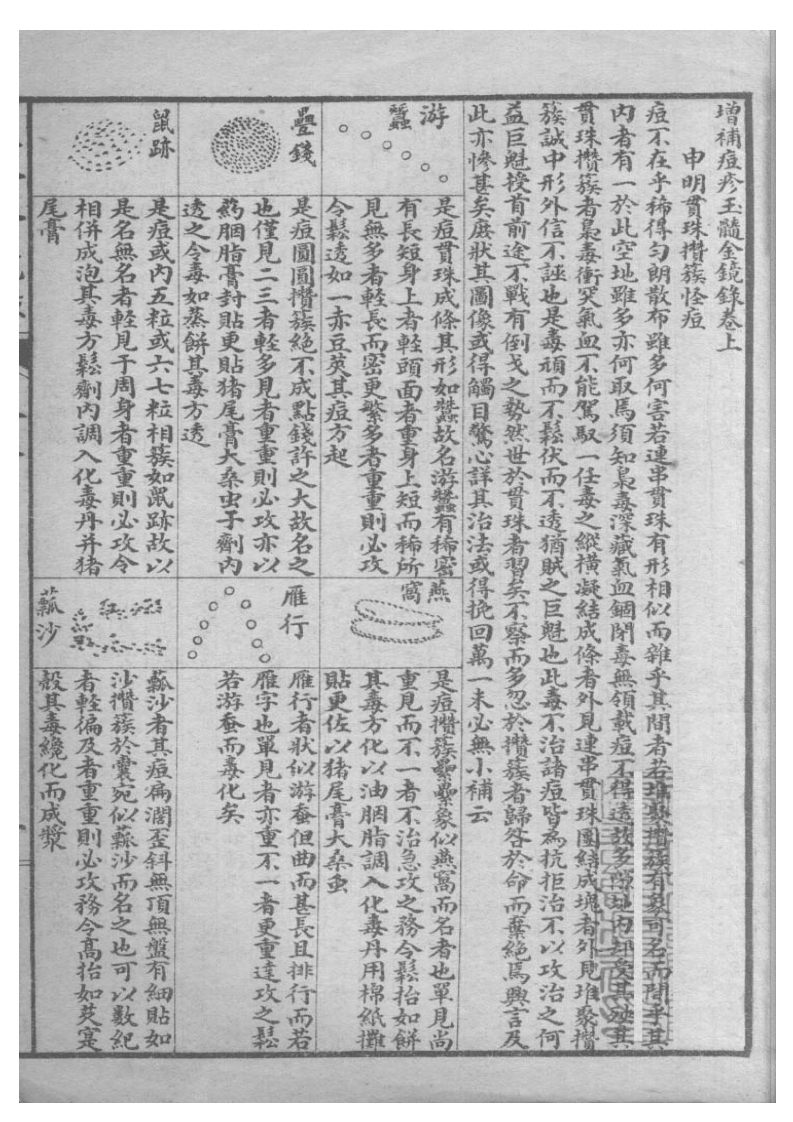 增補痘疹玉髓金鏡錄卷上
申明貫珠攢簇怪痘
痘不在乎稀得勻朗散布雖多何害若連串貫珠有形相似而雜乎其間者若堆聚攢簇有象可名而間乎其
內者有一於此空地雖多亦何取焉須知梟毒深藏氣血錮閉毒無領載痘不得透故多隙地內却受其殃其
貫珠攢簇者梟毒衝突氣血不能駕馭一任毒之縱橫凝結成條者外見連串貫珠團結成塊者外見堆聚攢
簇誠中形外信不誣也是毒頑而不鬆伏而不透猶賊之巨魁也此毒不治諸痘皆為抗拒治不以攻治之何
益巨魁授首前途不戰有倒戈之勢然世於貫珠者習矣不察而多忽於攢簇者歸咎於命而棄絕焉興言及
此亦慘甚矣庶狀其圖像或得觸目驚心詳其治法或得挽回萬一未必無小補云
游蠶
是痘貫珠成條其形如蠶故名游蠶有稀密
有長短身上者輕頭面者重身上短而稀所
見無多者輕長而密更繁多者重重則必攻
令鬆透如一赤豆莢其痘方起
疊錢
是痘圓圓攢簇絕不成點錢許之大故名之
也僅見二三者輕多見者重重則必攻亦以
葯胭脂膏封貼更貼猪尾膏大桑虫子劑內
透之令毒如蒸餅其毒方透
鼠跡
是痘或內五粒或六七粒相簇如鼠跡故以
是名無名者輕見于周身者重重則必攻令
相併成泡其毒方鬆劑內調入化毒丹并猪
尾膏
燕窩
是痘攢簇纍纍象似燕窩而名者也單見尚
重見而不一者不治急攻之務令鬆抬如餅
其毒方化以油胭脂調入化毒丹用棉紙攤
貼更佐以猪尾膏大桑蚤
雁行
雁行者狀似游蚕但曲而甚長且排行而若
雁字也單見者亦重不一者更重達攻之鬆
若游蚕而毒化矣
蓏沙
蓏沙者其痘扁濶歪斜無頂無盤有細貼如
沙攢簇於囊宛似蓏沙而名之也可以數紀
者輕徧及者重重則必攻務令高抬如芡寔
殼其毒纔化而成漿